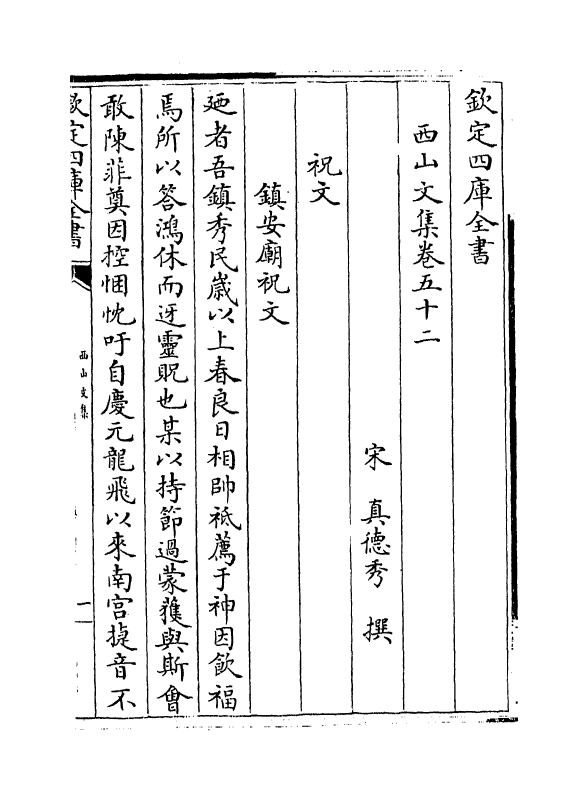 欽定四庫全書
西山文集卷五十二
宋 真德秀 撰
祝文
鎮安廟祝文
廼者吾鎮秀民嵗以上春良日相帥祗薦于神因飲福
焉所以答鴻休而迓靈貺也某以持節過蒙獲與斯會
敢陳菲奠因控悃忱吁自慶元龍飛以來南宫㨗音不
欽定四庫全書
西山文集
一